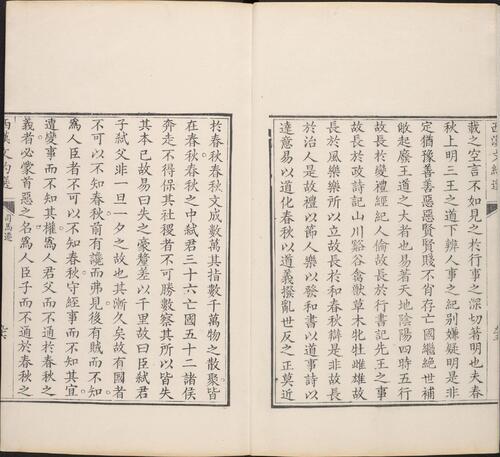 載之空言不如見之於行事之深切著明也夫春
秋上明三王之道下辨人事之紀别嫌疑明是非
定猶豫善善惡惡賢賢賤不肖存亡國繼絕世補
敝起廢王道之大者也易著天地陰陽四時五行
故長於變禮經紀人倫故長於行書記先王之事
故長於政詩記山川谿谷禽獸草木牝牡雌雄故
長於風樂樂所以立故長於和春秋辯是非故長
於治人是故禮以節人樂以發和書以道事詩以
達意易以道化春秋以道義撥亂世反之正莫近
於春秋春秋文成數萬其指數千萬物之散聚皆
在春秋春秋之中弑君三十六亡國五十二諸侯
奔走不得保其社稷者不可勝數察其所以皆失
其本已故易曰失之豪釐差以千里故曰臣弑君
子弑父非一旦一夕之故也其漸久矣故有國者
不可以不知春秋前有讒而弗見後有賊而不知
爲人臣者不可以不知春秋守經事而不知其宜
遭變事而不知其權爲人君父而不通於春秋之
義者必蒙首惡之名爲人臣子而不通於春秋之
司馬遷